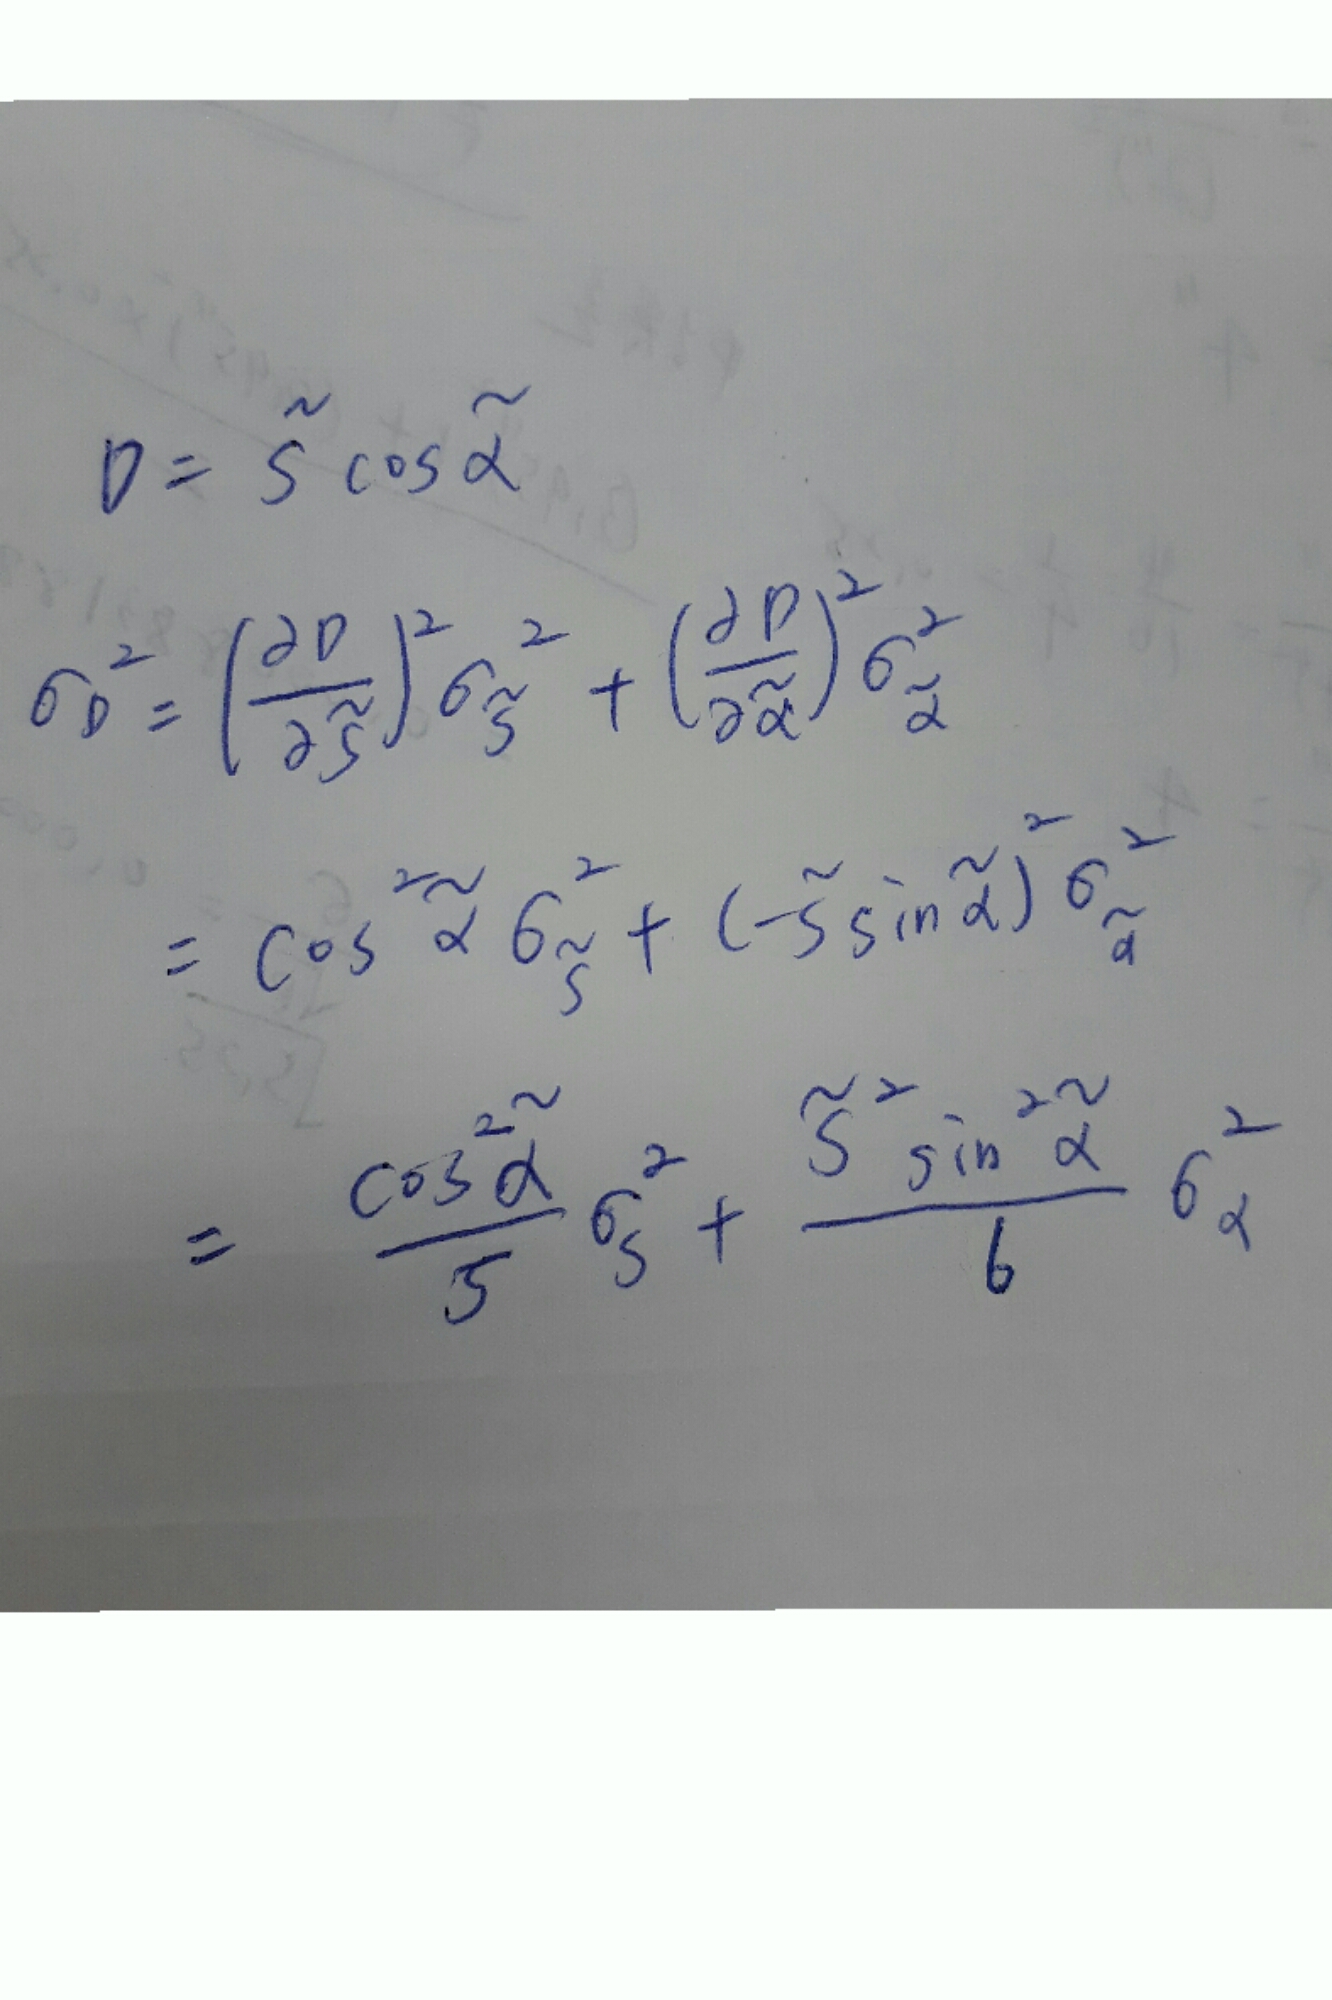 D = s̃ cos α̃
σ_D² = (∂D/∂s̃)² σ_s̃² + (∂D/∂α̃)² σ_α̃²
= cos² α̃ σ_s̃² + (-s̃ sin α̃)² σ_α̃²
= cos² α̃ / 5 σ_s² + s̃² sin² α̃ / 6 σ_α²